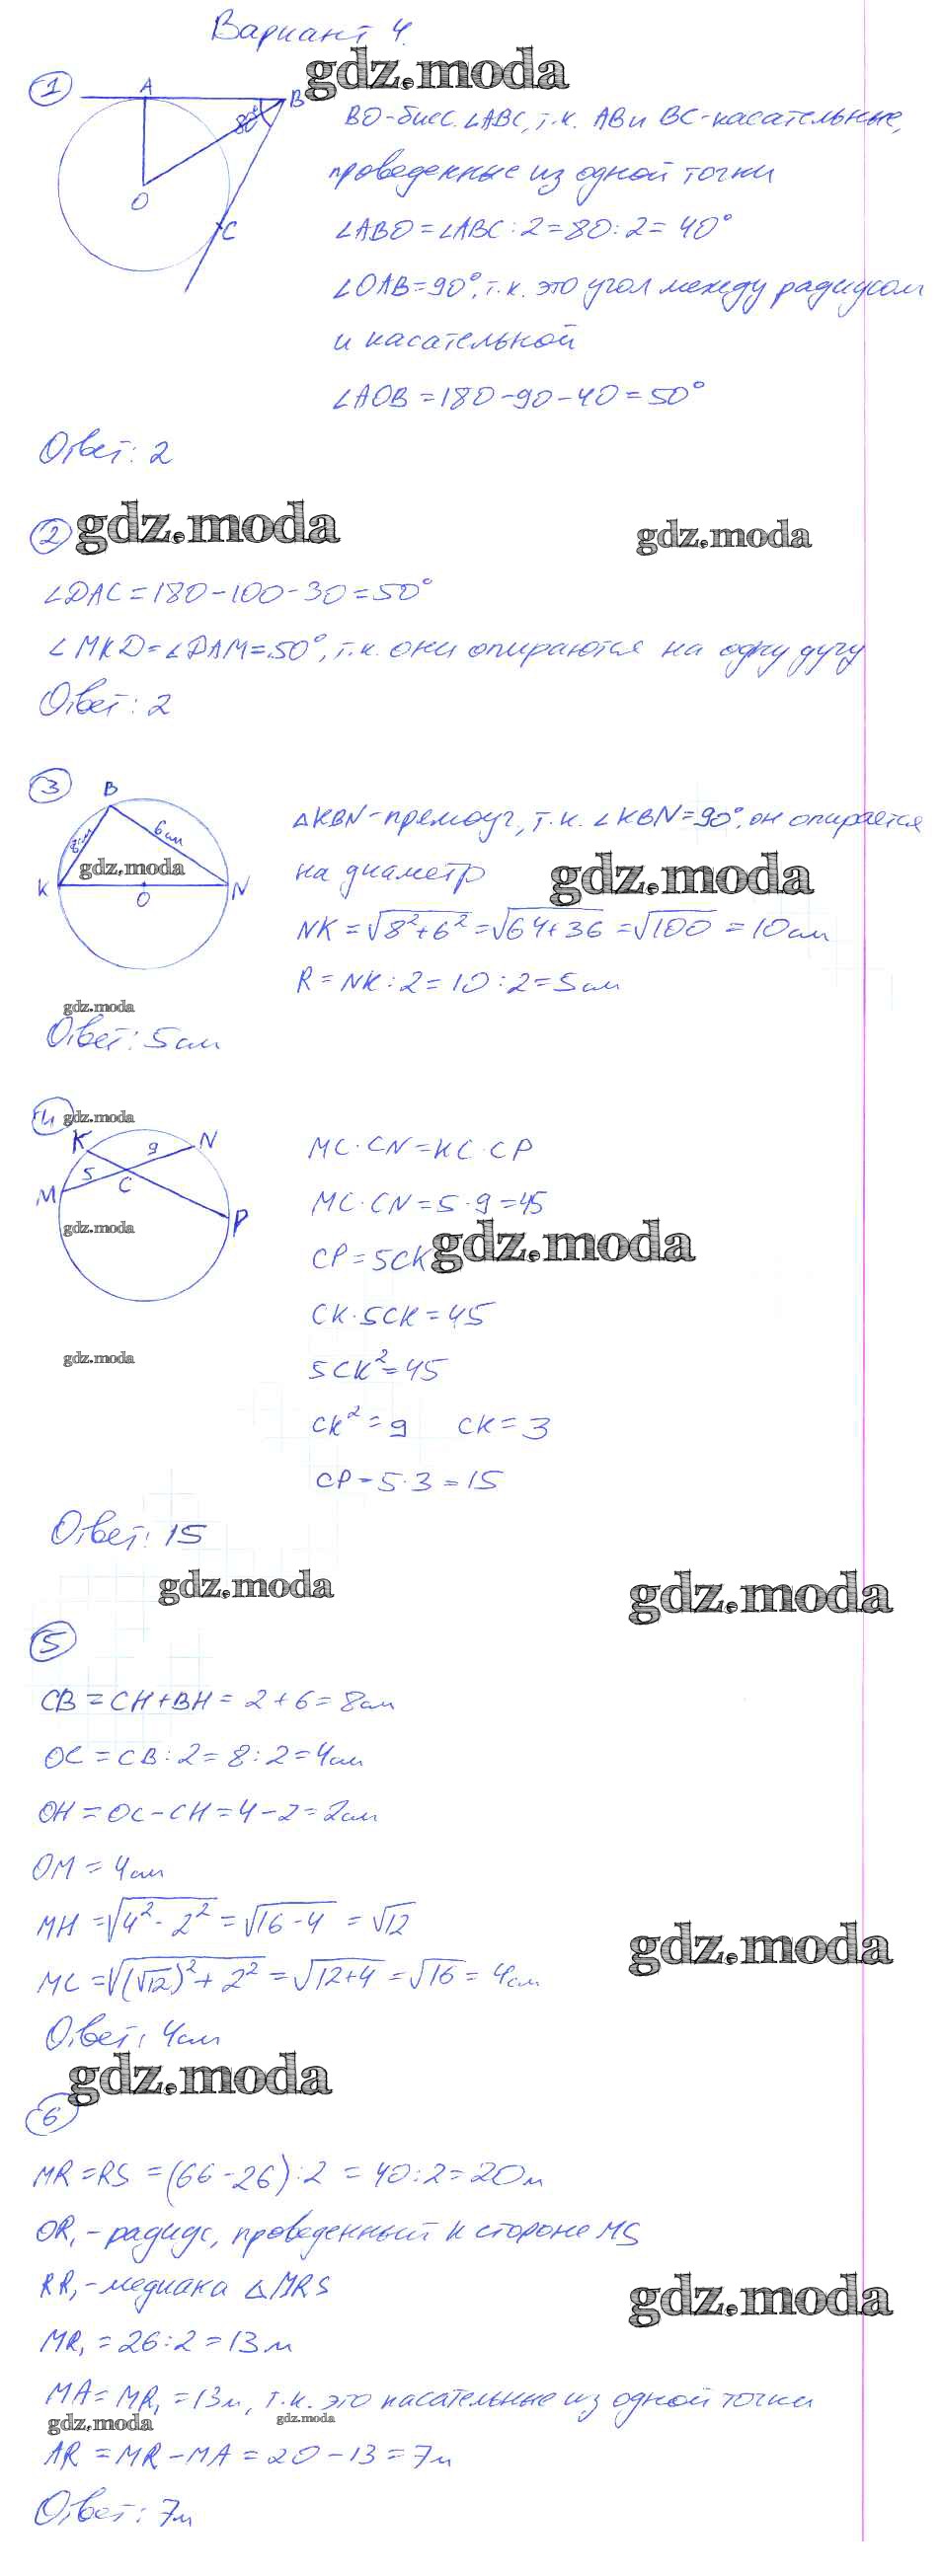 Вариант 4.
gdz.moda
1
A
B
80°
O
C
BO-бисс. ∠ABC, т.к. AB и BC-касательные,
проведенные из одной точки
∠ABO = ∠ABC : 2 = 80 : 2 = 40°
∠OAB = 90°, т.к. это угол между радиусом
и касательной
∠AOB = 180 - 90 - 40 = 50°
Ответ: 2
2
gdz.moda
gdz.moda
∠DAC = 180 - 100 - 30 = 50°
∠MKD = ∠DAM = 50°, т.к. они опираются на одну дугу
Ответ: 2
3
B
8см
6см
gdz.moda
K
O
N
△KBN-прямоуг, т.к. ∠KBN = 90°, он опирается
на диаметр
gdz.moda
NK = √8²+6² = √64+36 = √100 = 10 см
R = NK : 2 = 10 : 2 = 5 см
gdz.moda
Ответ: 5 см
4
gdz.moda
K
9
N
5
C
M
P
gdz.moda
MC · CN = KC · CP
MC · CN = 5 · 9 = 45
CP = 5CK
gdz.moda
CK · 5CK = 45
gdz.moda
5CK² = 45
CK² = 9 CK = 3
CP = 5 · 3 = 15
Ответ: 15
gdz.moda
gdz.moda
5
CB = CH + BH = 2 + 6 = 8 см
OC = CB : 2 = 8 : 2 = 4 см
OH = OC - CH = 4 - 2 = 2 см
OM = 4 см
MH = √4² - 2² = √16 - 4 = √12
gdz.moda
MC = √(√12)² + 2² = √12+4 = √16 = 4 см
Ответ: 4 см
gdz.moda
6
MR = RS = (66 - 26) : 2 = 40 : 2 = 20 м
OR₁ - радиус, проведенный к стороне MS
RR₁ - медиана △MRS
gdz.moda
MR₁ = 26 : 2 = 13 м
MA = MR₁ = 13 м, т.к. это касательные из одной точки
gdz.moda
gdz.moda
AR = MR - MA = 20 - 13 = 7 м
Ответ: 7 м